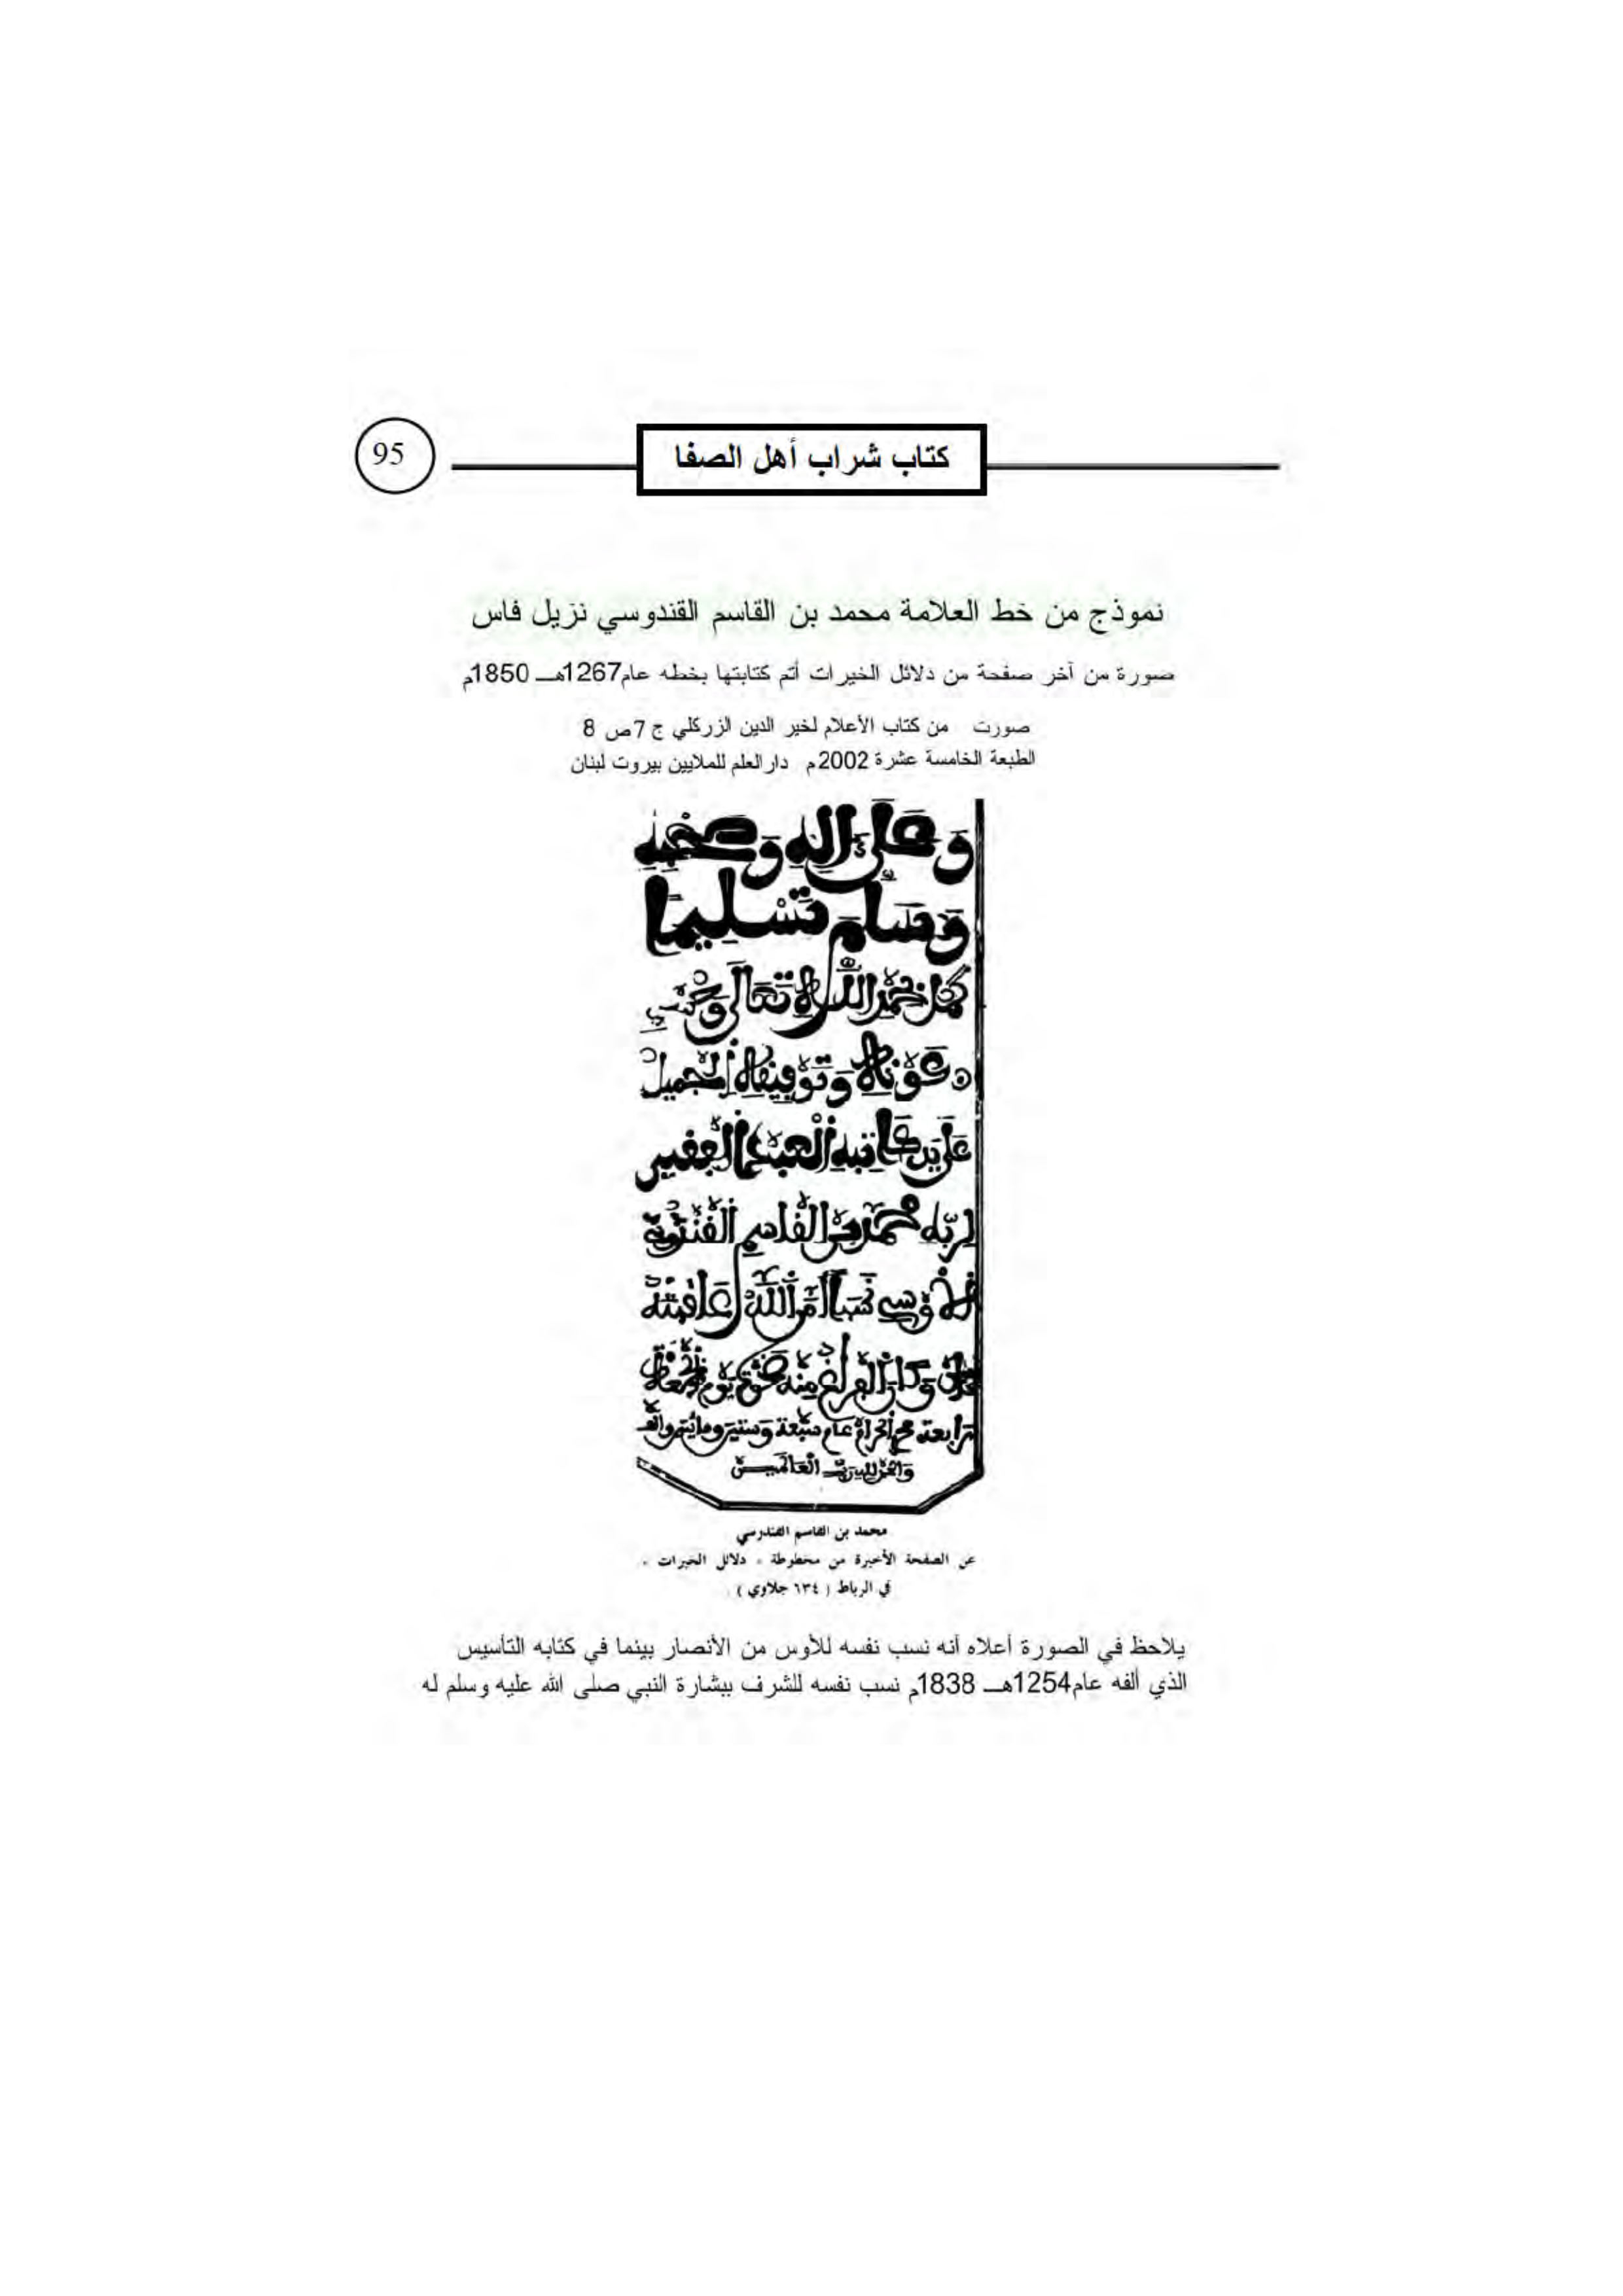 كتاب شراب أهل الصفا
95
نموذج من خط العلامة محمد بن القاسم القندوسي نزيل فاس
صورة من آخر صفحة من دلائل الخيرات أتم كتابتها بخطه عام1267هـ 1850م
صورت من كتاب الأعلام لخير الدين الزركلي ج 7ص 8
الطبعة الخامسة عشرة 2002م دارالعلم للملايين بيروت لبنان
وَعَلَى ءَالِهِ وَصَحْبِهِ
وَسَلِّمَ تَسْلِيمًا
كمل بحمد الله تعالى وحسن
عونه وتوفيقه الجميل
على يد كاتبه العبد الفقير
لربه محمد بن القاسم القندوسي
نسبا أمن الله عاقبته
وكان الفراغ منه ضحوة يوم
رابعة محرم الحرام عام سبعة وستين ومائتين وألف
والحمد لله رب العالمين
محمد بن القاسم القندوسي
عن الصفحة الأخيرة من مخطوطة « دلائل الخيرات »
في الرباط ( ٦٣٤ جلاوي )
يلاحظ في الصورة أعلاه أنه نسب نفسه للأوس من الأنصار بينما في كتابه التأسيس
الذي ألفه عام1254هـ 1838م نسب نفسه للشرف ببشارة النبي صلى الله عليه وسلم له